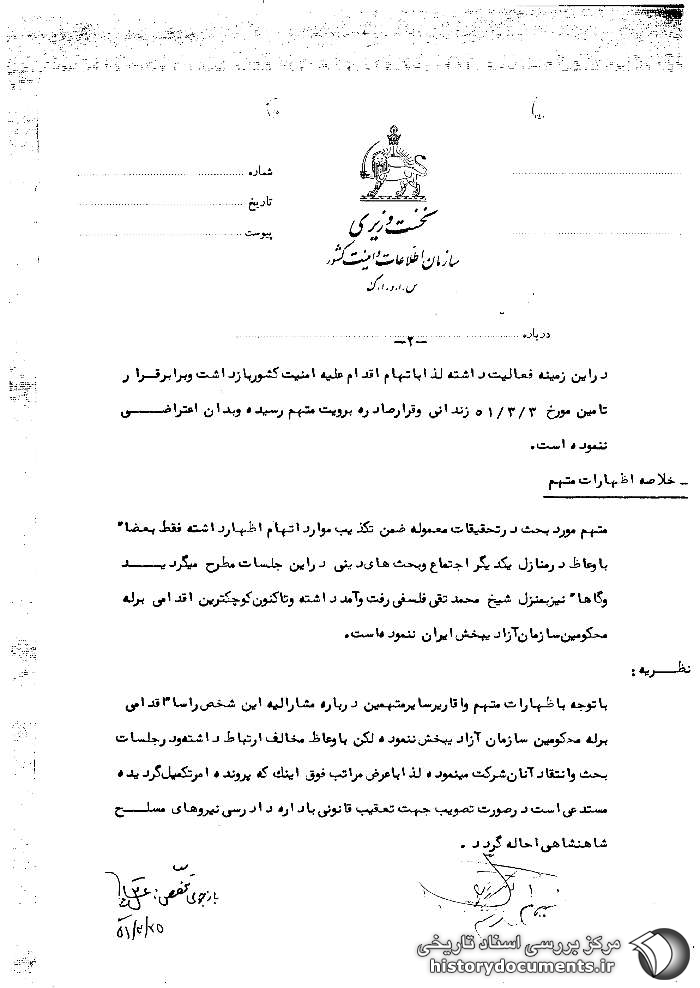 شماره
تاریخ
پیوست
نخست وزیری
سازمان اطلاعات و امنیت کشور
س.ا.و.ا.ک
درباره
-۲-
دراین زمینه فعالیت داشته لذا باتهام اقدام علیه امنیت کشور بازداشت وبرابر قرار
تامین مورخ ۵۱/۳/۳ زندانی وقرار صادره برویت متهم رسیده وبدان اعتراضی
ننموده است.
ـ خلاصه اظهارات متهم
متهم مورد بحث در تحقیقات معموله ضمن تکذیب موارد اتهام اظهار داشته فقط بعضاً
باوعاظ درمنازل یکدیگر اجتماع وبحث های دینی دراین جلسات مطرح میگردید
وگاهاً نیز بمنزل شیخ محمد تقی فلسفی رفت وآمد داشته وتاکنون کوچکترین اقدامی برله
محکومین سازمان آزادیبخش ایران ننموده است.
نظریه:
باتوجه باظهارات متهم واقاریر سایر متهمین درباره مشارالیه این شخص راساً اقدامی
برله محکومین سازمان آزادیبخش ننموده لکن باوعاظ مخالف ارتباط داشته ودر جلسات
بحث وانتقاد آنان شرکت مینموده لذا باعرض مراتب فوق اینک که پرونده امر تکمیل گردیده
مستدعی است درصورت تصویب جهت تعقیب قانونی باداره دادرسی نیروهای مسلح
شاهنشاهی احاله گردد.
بازجوی متخصص:
مرکز بررسی اسناد تاریخی
historydocuments.ir